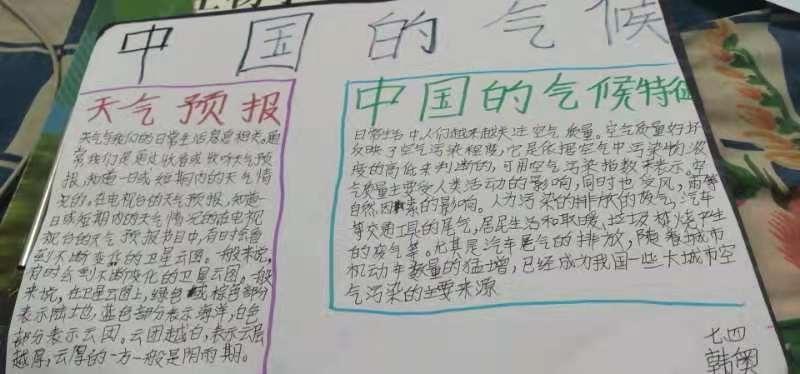 中国的气候
天气预报
天气与我们的日常生活息息相关。通
常我们是通过收看或收听天气预
报,知道一日或短期内的天气情
况的。在电视台的天气预报,知道一
日或短期内的天气情况的在电视
视台的天气预报节目中,有时会看
到不断变化的卫星云图。一般来说,
有时会看到不断变化的卫星云图,一般
来说,在卫星云图上,绿色或棕色部分
表示陆地,蓝色部分表示海洋,白色
部分表示云团。云团越白,表示云层
越厚,云厚的一方一般是阴雨期。
中国的气候特征
日常生活中人们越来越关注空气质量。空气质量好坏
反映了空气污染程度,它是依据空气中污染物浓
度的高低来判断的,可用空气污染指数来表示。空
气质量主要受人类活动的影响,同时也受风,雨等
自然因素的影响。人为污染的排放的废气,汽车
等交通工具的尾气,居民生活和取暖,垃圾焚烧产生
的废气等。尤其是汽车尾气的排放,随着城市
机动车数量的猛增,已经成为我国一些大城市空
气污染的主要来源
七四
韩奥